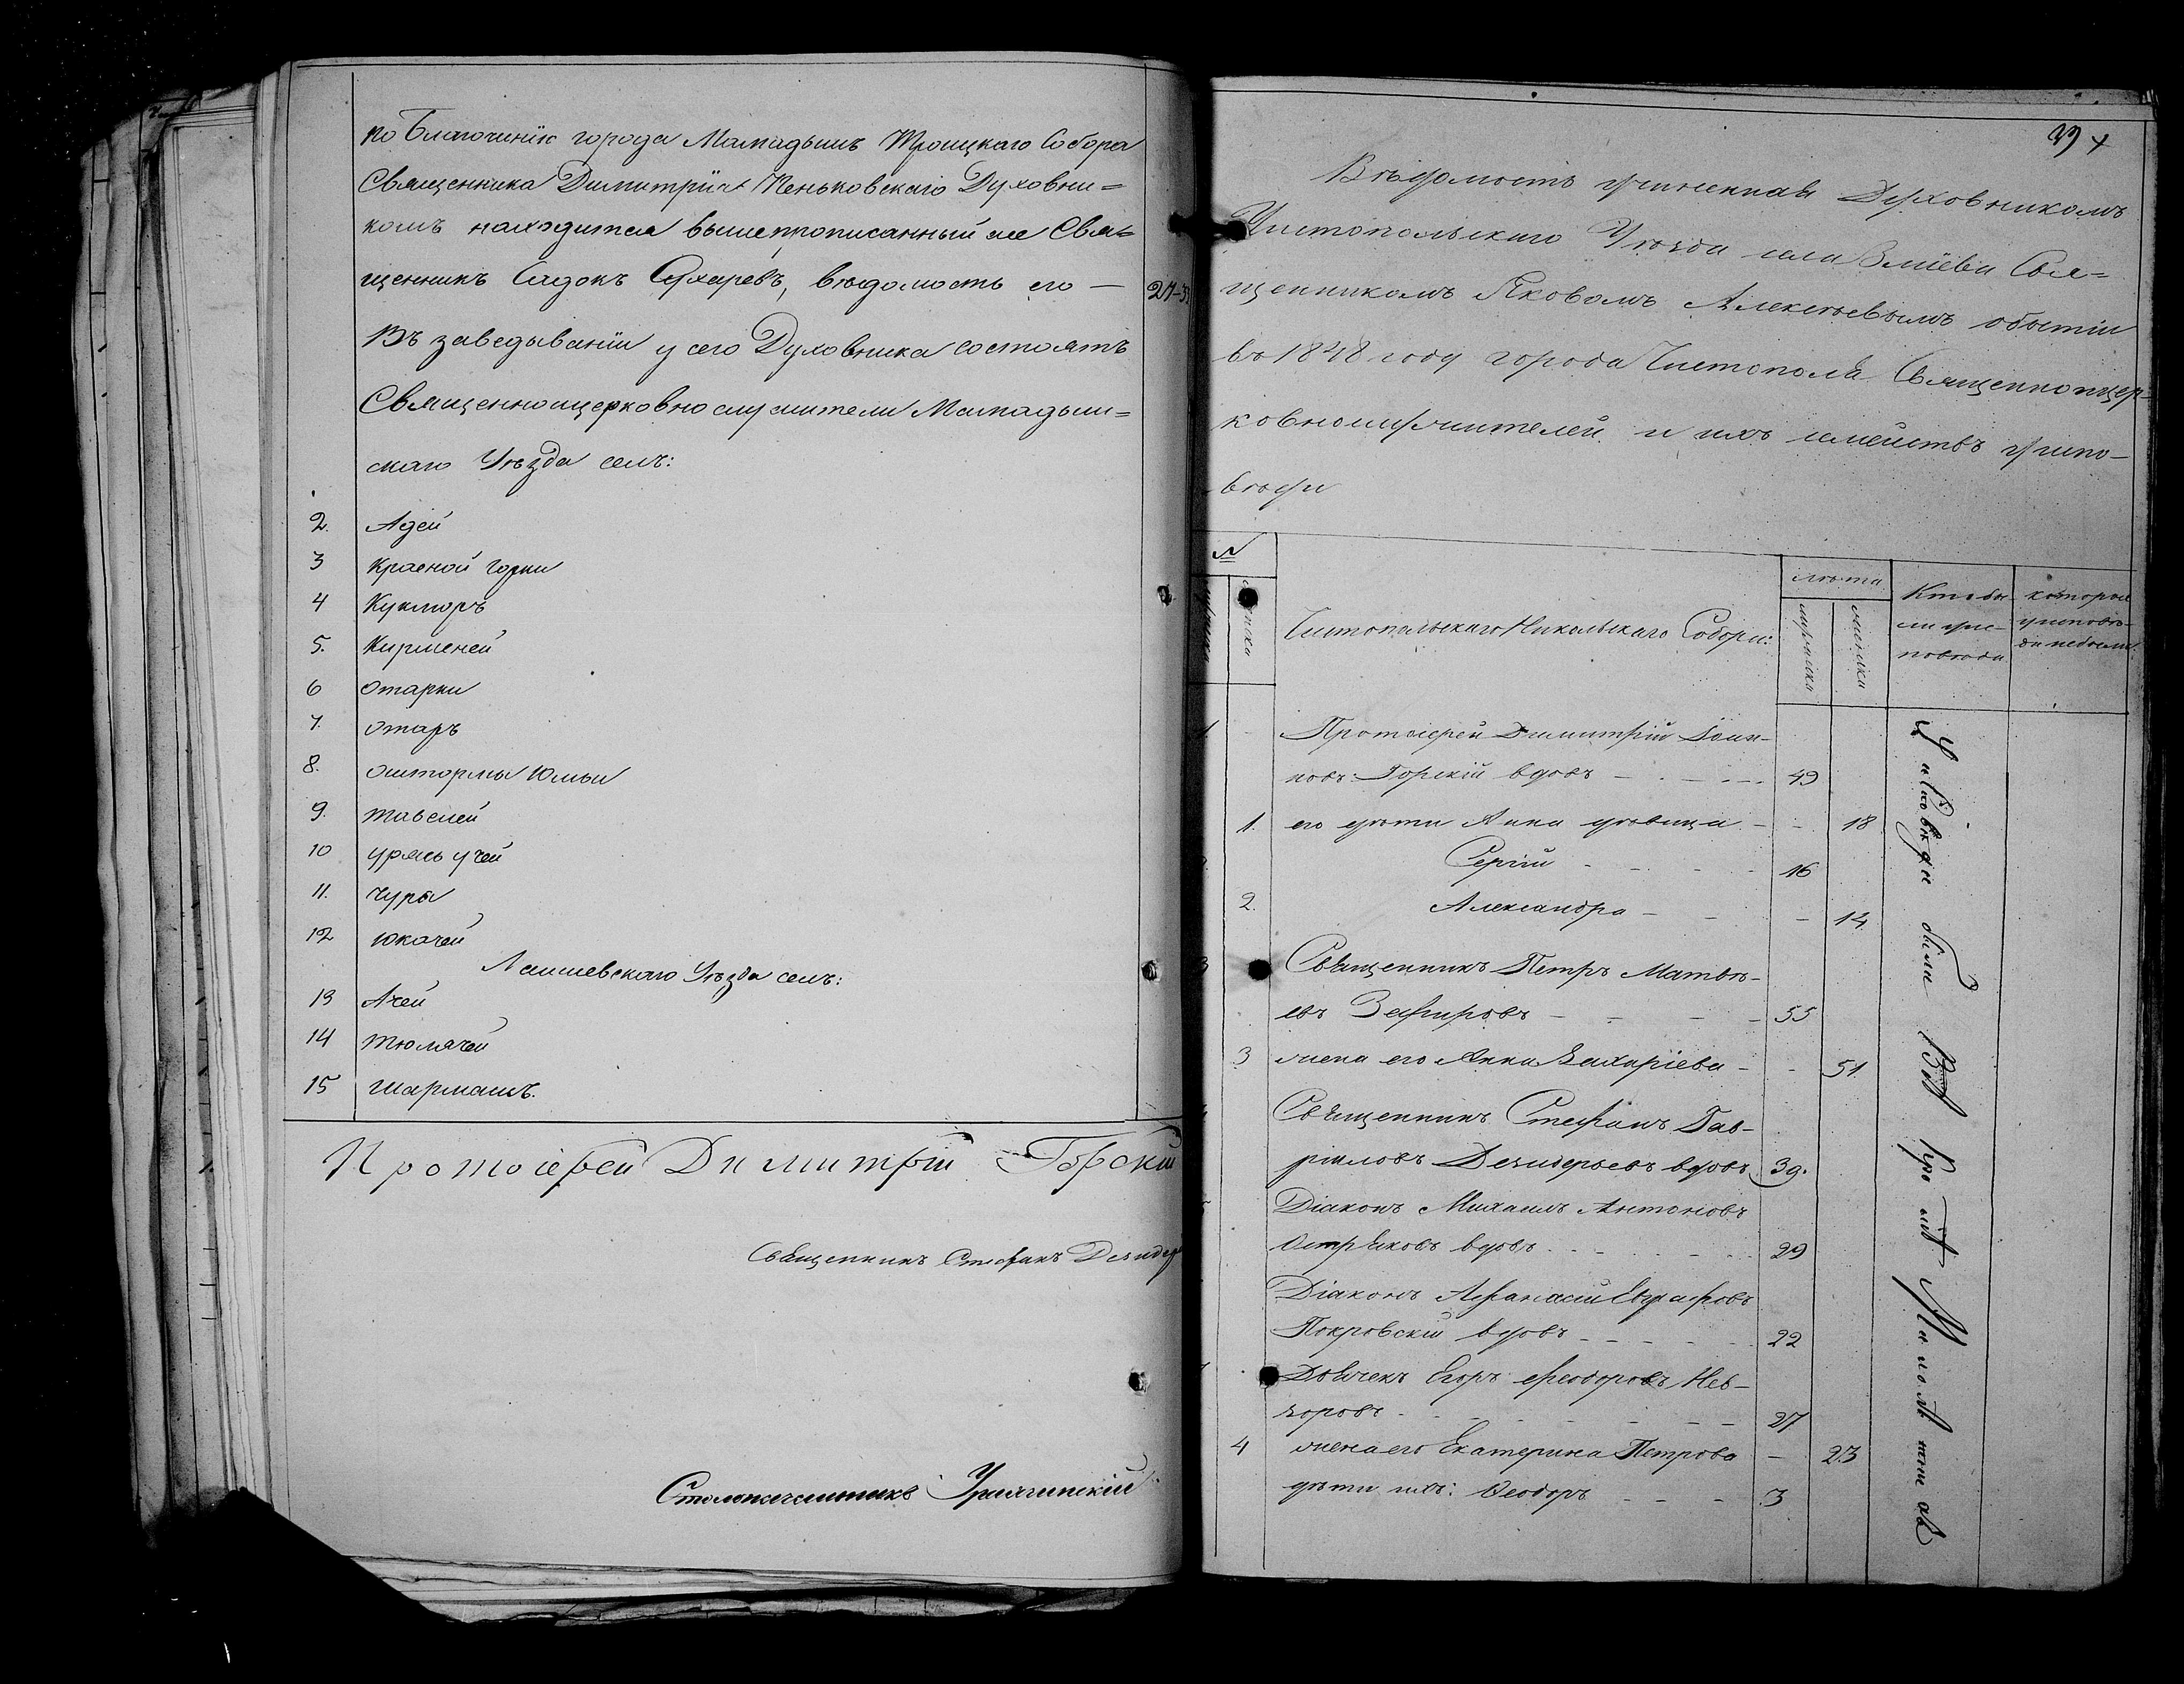 по Благочинію города Мамадышъ Троицкаго Собора
Священника Димитрія Пеньковскаго Духовни=
комъ находится вышепрописанный же Свя=
щенникъ Садокъ Сухаревъ, вѣдомость его — 27-3
Въ заведываніи у сего Духовника состоятъ
Священноицерковнослужители Мамадыш=
скаго Уѣзда селъ:
2. Адей
3 Красной Горки
4 Кукморъ
5. Кирменей
6 Отарки
7. Отаръ
8. Ошторма Юмьи
9. Тавелей
10 Урясь учей
11. Чуры
12 Юкачей
Лаишевскаго Уѣзда селъ:
13 Ачей
14 Тюлячей
15 Шармашъ.
Протоіерей Димитрій Горскій
Священникъ Стефанъ Дезидер
Столоначальникъ
39
Вѣдомость учиненная Духовникомъ
Чистопольскаго Уѣзда села Свя=
щенникомъ Яковомъ Алексѣевымъ о бытіи
въ 1848 году города Чистополя Священноицер=
ковнослужителей и ихъ семействъ у испо-
вѣди
№
мужеска
женска
Чистопольскаго Никольскаго Собора:
лѣта
мужеска
женска
Кто бы-
ли у ис-
повѣди
которые
у исповѣ-
ди небыли
1 Протоіерей Димитрій Іоан-
новъ Горскій вдовъ — 49
1. его дѣти Анна дѣвица - 18
Сергій - 16
2. Александра - 14
3 Священникъ Петръ Матвѣ-
евъ Зефировъ — 55
3 жена его Анна Захаріева - 51
Священникъ Стефанъ Гав-
риловъ Дезидерьевъ вдовъ 39.
Діаконъ Михаилъ Антоновъ
Остряковъ вдовъ - 29
Діаконъ Афанасій Евграфовъ
Покровскій вдовъ - 22
Дьячекъ Егоръ Феодоровъ Нев-
зоровъ - 27
4 жена его Екатерина Петрова — 23
дѣти ихъ: Ѳеодоръ - 3
У исповѣди были Всѣ кромѣ Малолѣтнихъ